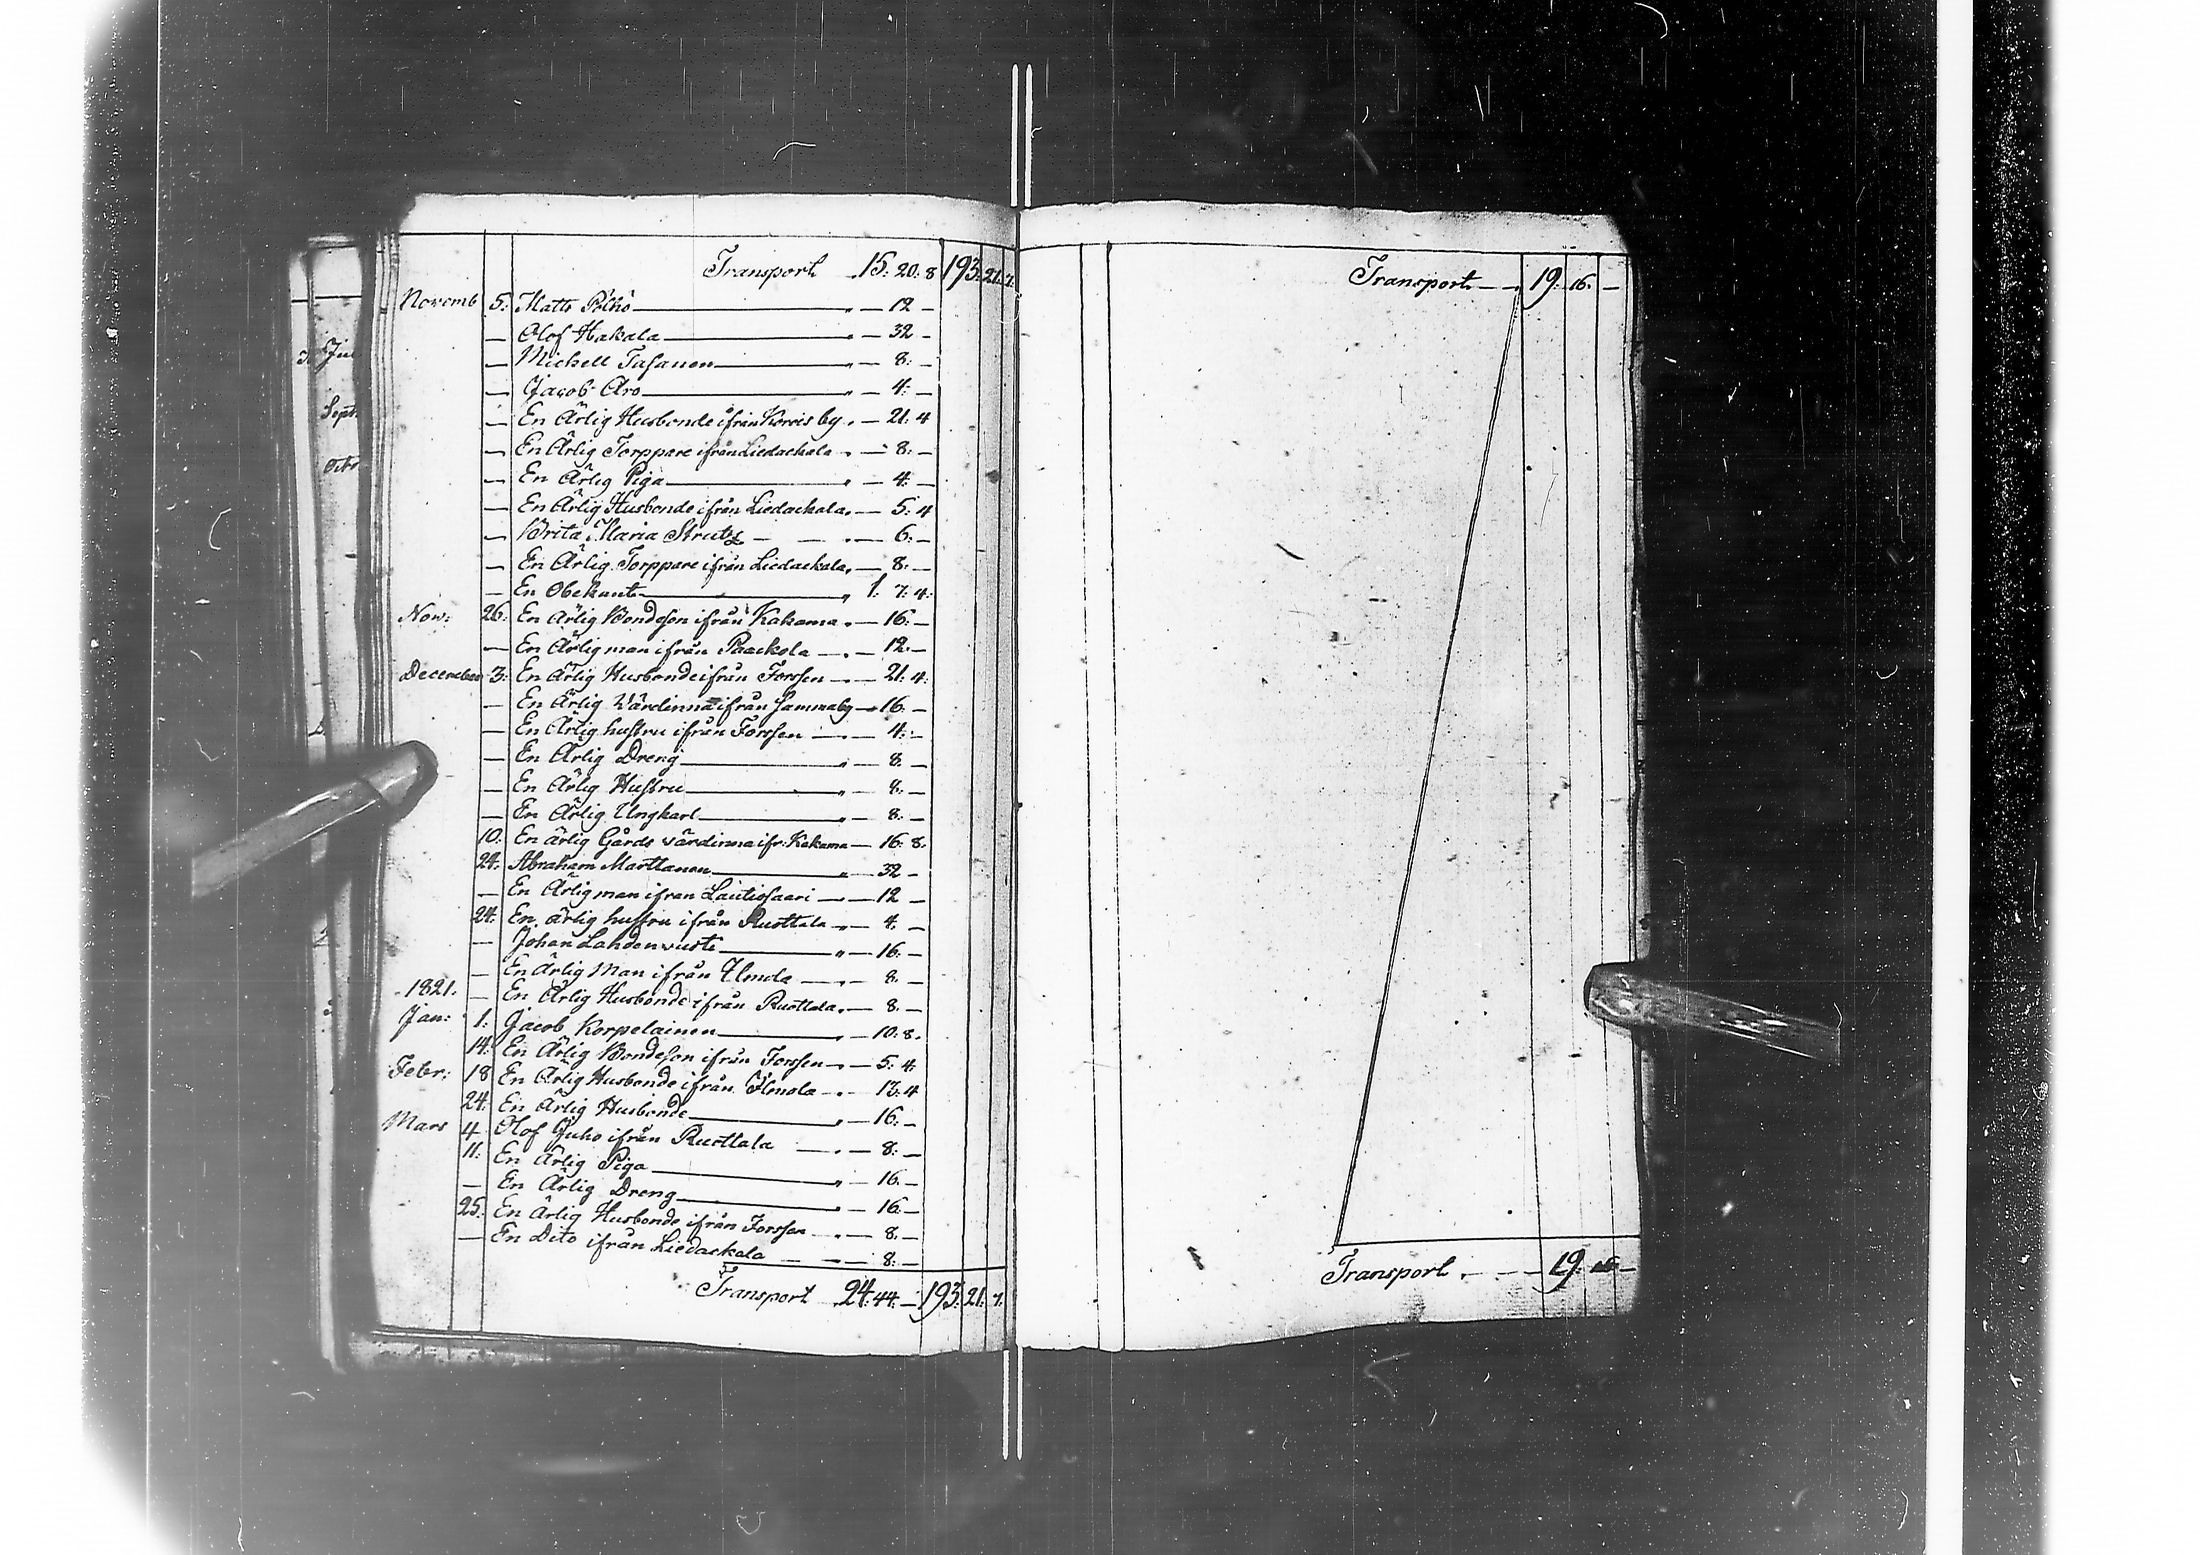 Transport 15: 20: 8 193: 21: 7:
Novemb 5: Matts Pölhö " — 12 —
— Olof Hakala " — 32 —
— Michell Tasanen " — 8: —
— Jacob Aro " — 4: —
— En Ärlig Husbonde ifrån Korvis by " — 21: 4
— En Ärlig Torppare ifrån Liedackala " — 8: —
— En Ärlig Piga " — 4: —
— En Ärlig Husbonde ifrån Liedackala " — 5: 4
— Brita Maria Strutz " — 6: —
— En Ärlig Torppare ifrån Liedackala " — 8: —
— En Obekant " 1: 7: 4:
Nov: 26: En Ärlig Bondeson ifrån Kakama " — 16: —
— En Ärlig man ifrån Paackola " — 12: —
December 3: En Ärlig Husbonde ifrån Forssen " — 21: 4:
— En Ärlig Värdinna ifrån samma by — 16: —
— En Ärlig hustru ifrån Forssen — 4: —
— En Ärlig Dreng " — 8: —
— En Ärlig Hustru " — 8: —
— En Ärlig Ungkarl " — 8: —
10: En ärlig Gårds värdinna ifr: Kakama — 16: 8:
24: Abraham Marttanen " — 32 —
— En Ärlig man ifrån Lautiosaari — 12 —
24: En ärlig hustru ifrån Rusttala " — 4: —
— Johan Lahdenvuste " — 16: —
— En Ärlig Man ifrån Ylmola " — 8: —
1821. — En Ärlig Husbonde ifrån Rusttala " — 8: —
Jan: 1: Jacob Korpelainen " — 10: 8:
14: En Ärlig Bondeson ifrån Forssen " — 5: 4:
Febr: 18 En Ärlig Husbonde ifrån Ylmola " — 13: 4
24: En Ärlig Husbonde " — 16: —
Mars 4 Olof Juho ifrån Rusttala " — 8: —
11: En Ärlig Piga " — 16: —
— En Ärlig Dreng " — 16: —
25: En Ärlig Husbonde ifrån Forssen " — 8: —
— En Dito ifrån Liedackala " — 8: —
Transport 24: 44: — 193: 21: 7:
Jul
Sept
Octr
Transport — 19: 16: —
Transport — 19: 16 —